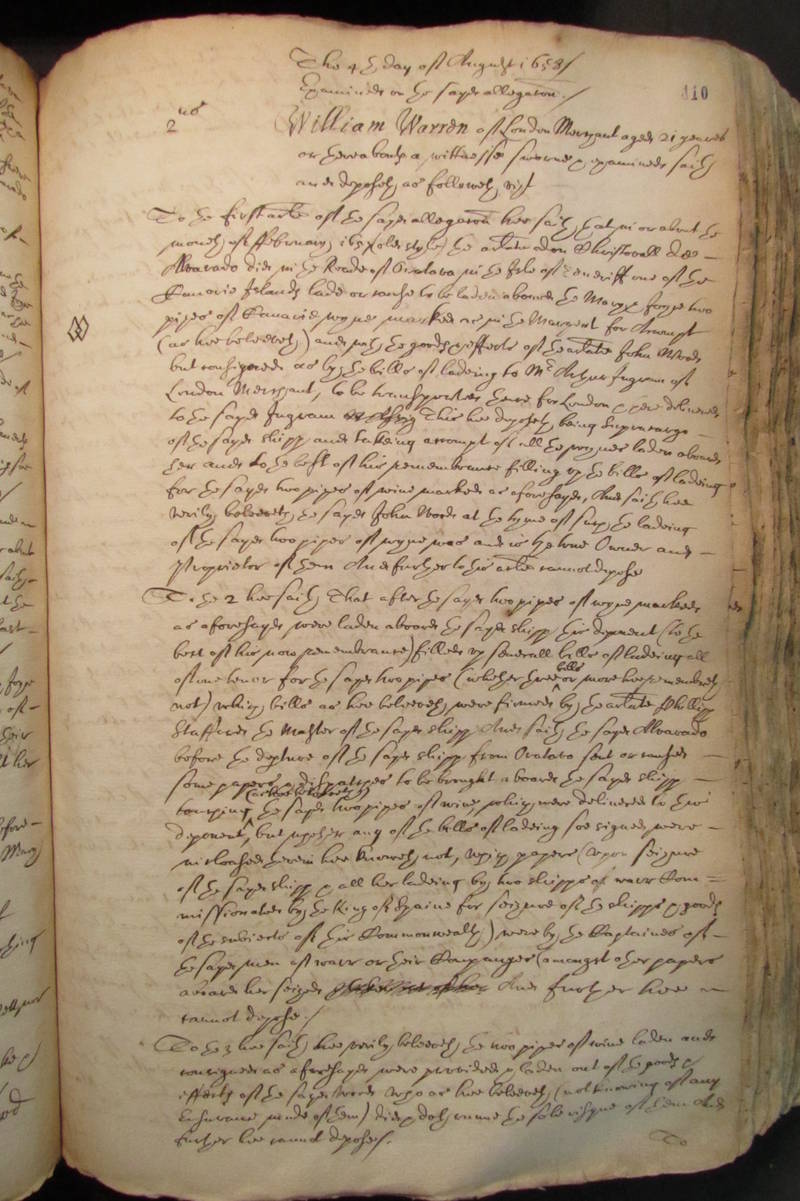 The 4th day of August 1658/
Examined on the sayd allegation./
110
2us
William Warren of London Merchant aged 21 yeares
or thereabouts a wittnesse sworne and examined saith
and deposeth as followeth vizt
To the first arle of the sayd allegation hee saith that in or about the
moneth of ffebruary 1657 (old style) the arlate don Christovall de
Alvarado did in the Roade of Oratava in the Isle of Teneriff one of the
Canarie Islands lade or cause to be laden aboard the Mary and Joyce two
pipes of Canarie wyne marked as in the Margent for Accompt
(as hee beleeveth) and with the goods and effects of the arlate John Wood
but consigned as by the bills of ladeing to Mr Arthur Ingram of
London Merchant, to be transported thence for London and there delivered
to the sayd Ingram This hee deposeth being Supracargo
of the sayd shipp and takeing accompt of all the wynes laden aboard
her and to the best of his remembrance filling up the bills of ladeing
for the sayd two pipes of wine marked as aforesayd, And saith hee
verily beleeveth the sayd John Wood at the tyme of such the ladeing
of the sayd two pipes of wyne was and is the true Owner and
Proprietor of them And further to his arle cannot depose
To the 2 hee saith That after the sayd two pipes of wyne marked
as aforesayd were laden aboard the sayd shipp his deponent (to the
best of his now remembrance) filled up severall bills of ladeing all
of one tenor for the sayd two pipes (whether three or more bills hee remembreth
not) which bills as hee beleeveth were firmed by the arlate Phillipp
Stafford the Master of the sayd shipp And saith the sayd Alvarado
before the depture of the sayd shipp from Oratava sent or caused
some papers and dispatches to be brought aboard the sayd shipp
(as hee beleeveth)
touching the sayd two pipes of wine, which were delivered to his
deponent, but whether any of the bills of ladeing soe signed were
incloased therein hee knoweth not, which papers (upon seizure
of the sayd shipp and all her ladeing by two shipps of warr Com=
missionated by the King of Spaine for seizure of the shipps and goods
of the subiects of this Commonwealth) were by the Captaines of
the sayd men of warr or their Companyes (amongst other papers
aboard her seized And further hee
cannot depose./
To the 3 hee saith hee verily beleeveth the two pipes of wine laden and
consigned as aforesayd were provided and laden out of the goods and
effects of the sayd Wood who as hee beleeveth (not knowing of any
Ensurance made of them) did and doth runne the sole risque of them And
further hee cannot depose/.
To